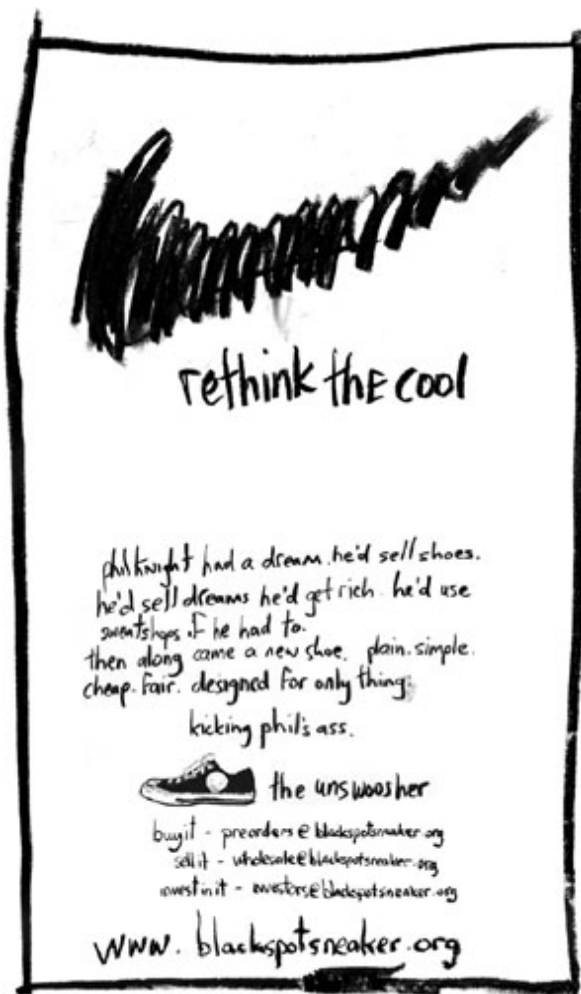 rethink thE cool
phil knight had a dream. he'd sell shoes.
he'd sell dreams he'd get rich. he'd use
sweatshops if he had to.
then along came a new shoe. plain. simple.
cheap. fair. designed for only thing.
kicking phil's ass.
the unswoosher
buy it - preorders@blackspotsneaker.org
sell it - wholesale@blackspotsneaker.org
invest in it - investors@blackspotsneaker.org
www.blackspotsneaker.org